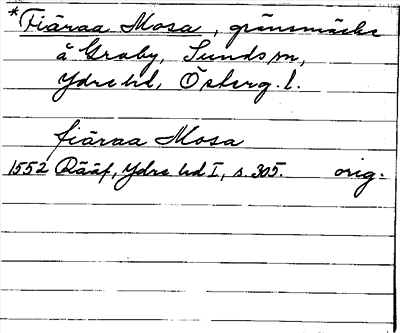 *Fiäraa Mosa, gränsmärke
å Graby, Sunds sn,
Ydre hd, Österg. l.
fiäraa Mosa
1552 Rääf, Ydre hd I, s. 305. orig.